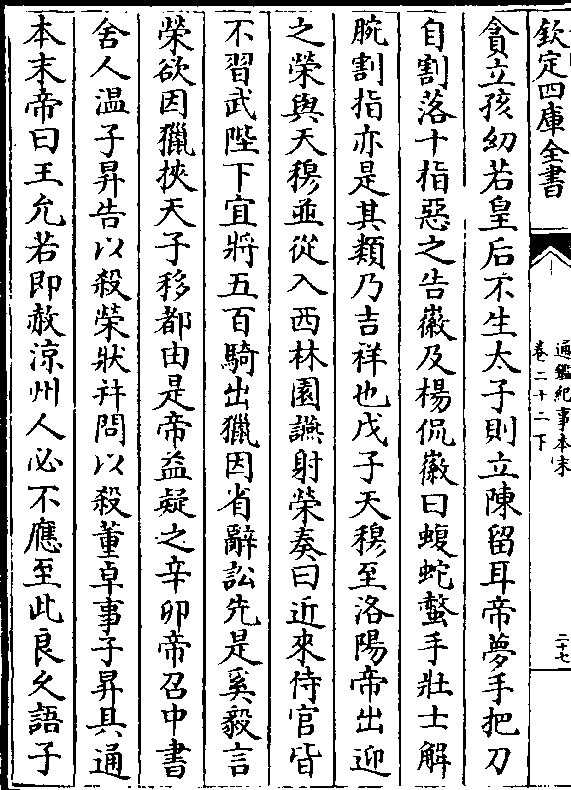 欽定四庫全書
通鑑紀事本末
卷二十二下
二十七
貪立孩幼若皇后不生太子則立陳留耳帝夢手把刀
自割落十指惡之告徽及楊侃徽曰蝮蛇螫手壯士解
腕割指亦是其類乃吉祥也戊子天穆至洛陽帝出迎
之榮與天穆並從入西林園讌射榮奏曰近來侍官皆
不習武陛下宜將五百騎出獵因省辭訟先是奚毅言
榮欲因獵挾天子移都由是帝益疑之辛卯帝召中書
舍人温子昇告以殺榮狀并問以殺董卓事子昇具通
本末帝曰王允若即赦涼州人必不應至此良久語子